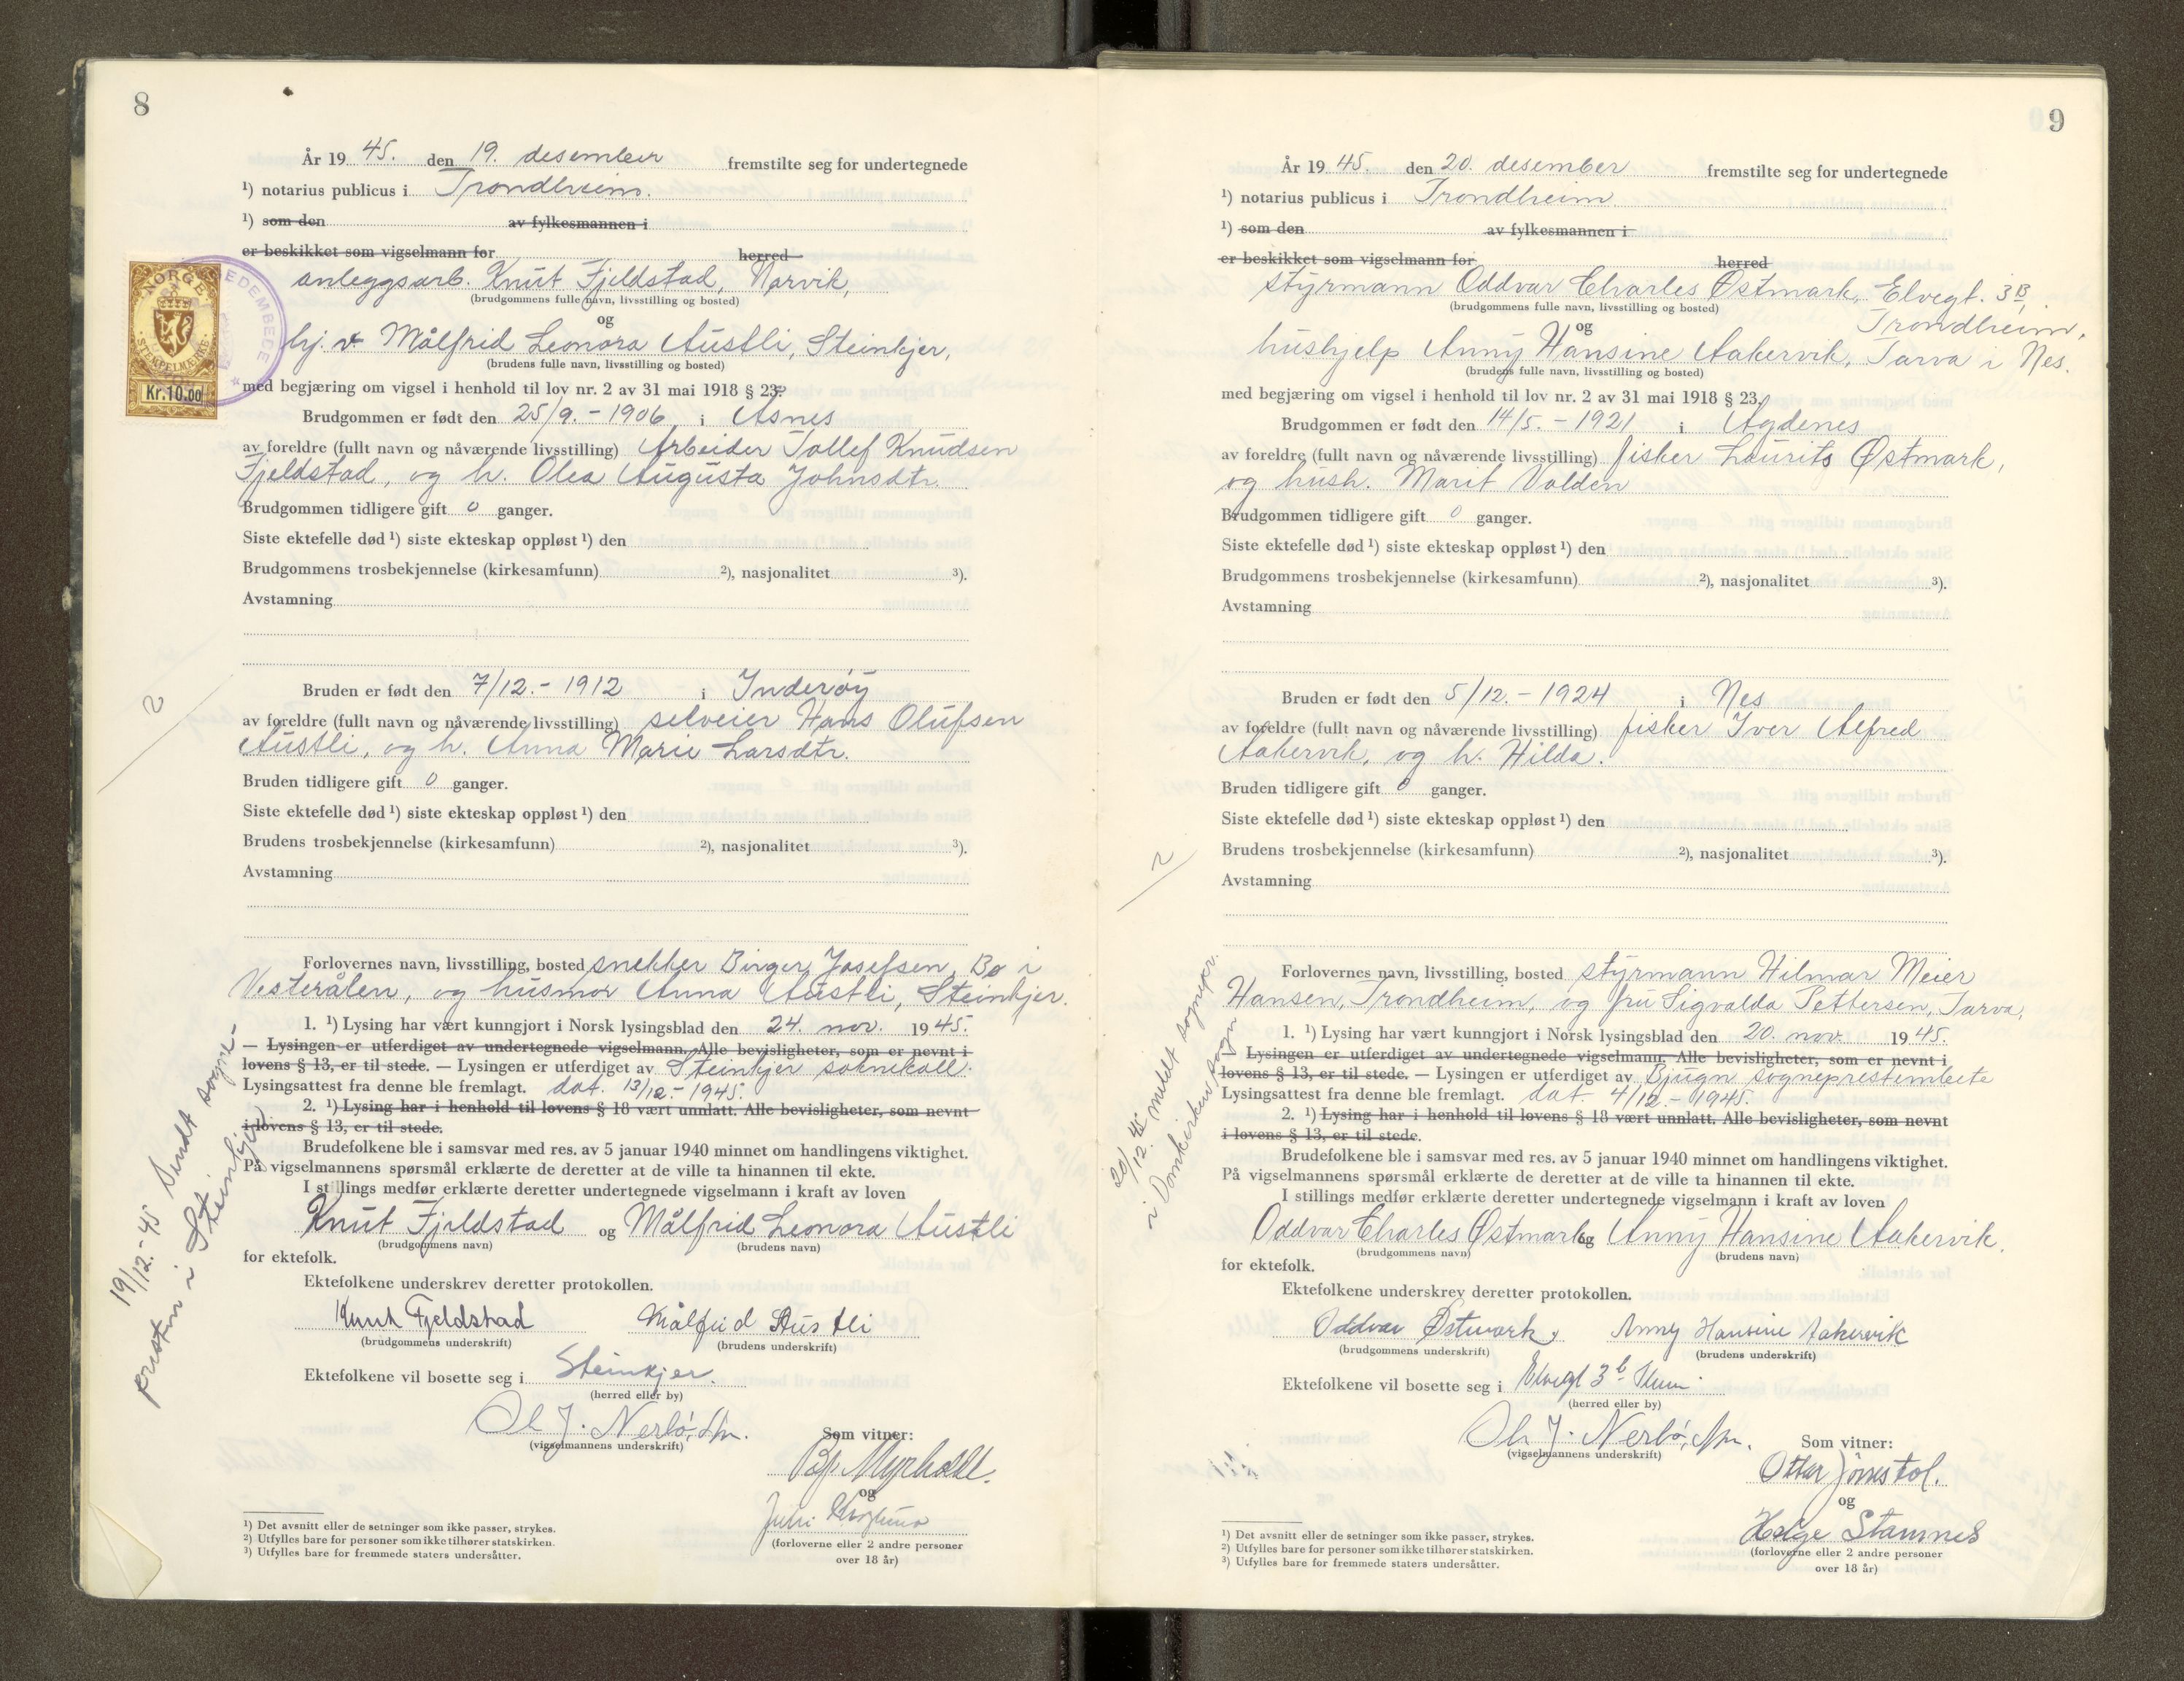 8
År 19 45. den 19. desember fremstilte seg for undertegnede
¹) notarius publicus i Trondheim.
¹) som den av fylkesmannen i
er beskikket som vigselmann for herred
NORGE
STEMPELMERKE
Kr. 10.00
anleggsarb. Knut Fjeldstad, Narvik,
(brudgommens fulle navn, livsstilling og bosted)
og
hj. v. Målfrid Leonora Austli, Steinkjer,
(brudens fulle navn, livsstilling og bosted)
med begjæring om vigsel i henhold til lov nr. 2 av 31 mai 1918 § 23.
Brudgommen er født den 25/9. - 1906 i Åsnes
av foreldre (fullt navn og nåværende livsstilling) Arbeider Tollef Knudsen
Fjeldstad, og h. Olea Augusta Johnsdtr.
Brudgommen tidligere gift 0 ganger.
Siste ektefelle død ¹) siste ekteskap oppløst ¹) den
Brudgommens trosbekjennelse (kirkesamfunn) ²), nasjonalitet ³).
Avstamning
2
Bruden er født den 7/12. - 1912 i Inderøy
av foreldre (fullt navn og nåværende livsstilling) selveier Hans Olufsen
Austli, og h. Anna Marie Larsdtr.
Bruden tidligere gift 0 ganger.
Siste ektefelle død ¹) siste ekteskap oppløst ¹) den
Brudens trosbekjennelse (kirkesamfunn) ²), nasjonalitet ³).
Avstamning
Forlovernes navn, livsstilling, bosted snekker Birger Josefsen, Bø i
Vesterålen, og husmor Anna Austli, Steinkjer.
1. ¹) Lysing har vært kunngjort i Norsk lysingsblad den 24. nov. 1945.
— Lysingen er utferdiget av undertegnede vigselmann. Alle bevisligheter, som er nevnt i
lovens § 13, er til stede. — Lysingen er utferdiget av Steinkjer soknekall.
Lysingsattest fra denne ble fremlagt. dat. 13/12. - 1945.
2. ¹) Lysing har i henhold til lovens § 18 vært unnlatt. Alle bevisligheter, som nevnt
i lovens § 13, er til stede.
Brudefolkene ble i samsvar med res. av 5 januar 1940 minnet om handlingens viktighet.
På vigselmannens spørsmål erklærte de deretter at de ville ta hinannen til ekte.
I stillings medfør erklærte deretter undertegnede vigselmann i kraft av loven
Knut Fjeldstad og Målfrid Leonora Austli
(brudgommens navn) (brudens navn)
for ektefolk.
Ektefolkene underskrev deretter protokollen.
Knut Fjeldstad Målfrid Austli
(brudgommens underskrift) (brudens underskrift)
Ektefolkene vil bosette seg i Steinkjer.
(herred eller by)
Ol J. Nerbö, fm.
(vigselmannens underskrift)
Som vitner:
og
(forloverne eller 2 andre personer
over 18 år)
¹) Det avsnitt eller de setninger som ikke passer, strykes.
²) Utfylles bare for personer som ikke tilhører statskirken.
³) Utfylles bare for fremmede staters undersåtter.
19/12. - 45 Sendt sogne-
presten i Steinkjer
9
År 19 45. den 20. desember fremstilte seg for undertegnede
¹) notarius publicus i Trondheim
¹) som den av fylkesmannen i
er beskikket som vigselmann for herred
styrmann Oddvar Charles Østmark, Elvegt. 3B
(brudgommens fulle navn, livsstilling og bosted)
Trondheim,
og
hushjelp Anny Hansine Aakervik, Tarva i Nes.
(brudens fulle navn, livsstilling og bosted)
med begjæring om vigsel i henhold til lov nr. 2 av 31 mai 1918 § 23.
Brudgommen er født den 14/5. - 1921 i Agdenes
av foreldre (fullt navn og nåværende livsstilling) fisker Laurits Østmark,
og hush. Marit Valden
Brudgommen tidligere gift 0 ganger.
Siste ektefelle død ¹) siste ekteskap oppløst ¹) den
Brudgommens trosbekjennelse (kirkesamfunn) ²), nasjonalitet ³).
Avstamning
Bruden er født den 5/12. - 1924 i Nes
av foreldre (fullt navn og nåværende livsstilling) fisker Iver Alfred
Aakervik, og h. Hilda.
Bruden tidligere gift 0 ganger.
Siste ektefelle død ¹) siste ekteskap oppløst ¹) den
Brudens trosbekjennelse (kirkesamfunn) ²), nasjonalitet ³).
2
Avstamning
Forlovernes navn, livsstilling, bosted styrmann Hilmar Meier
Hansen, Trondheim, og fru Sigvalda Pettersen, Tarva,
1. ¹) Lysing har vært kunngjort i Norsk lysingsblad den 20. nov. 1945.
— Lysingen er utferdiget av undertegnede vigselmann. Alle bevisligheter, som er nevnt i
lovens § 13, er til stede. — Lysingen er utferdiget av Bjugn sogneprestembete
Lysingsattest fra denne ble fremlagt. dat. 4/12. - 1945.
2. ¹) Lysing har i henhold til lovens § 18 vært unnlatt. Alle bevisligheter, som nevnt
i lovens § 13, er til stede.
Brudefolkene ble i samsvar med res. av 5 januar 1940 minnet om handlingens viktighet.
På vigselmannens spørsmål erklærte de deretter at de ville ta hinannen til ekte.
I stillings medfør erklærte deretter undertegnede vigselmann i kraft av loven
Oddvar Charles Østmark og Anny Hansine Aakervik.
(brudgommens navn) (brudens navn)
for ektefolk.
Ektefolkene underskrev deretter protokollen.
Oddvar Østmark, Anny Hansine Aakervik
(brudgommens underskrift) (brudens underskrift)
Ektefolkene vil bosette seg i Elvegt 3b
(herred eller by)
Ol J. Nerbö, fm.
(vigselmannens underskrift)
Som vitner:
Ottar
og
Helge Stamnes
(forloverne eller 2 andre personer
over 18 år)
¹) Det avsnitt eller de setninger som ikke passer, strykes.
²) Utfylles bare for personer som ikke tilhører statskirken.
³) Utfylles bare for fremmede staters undersåtter.
20/12. 45 meldt sognepr.
i Domkirken sogn